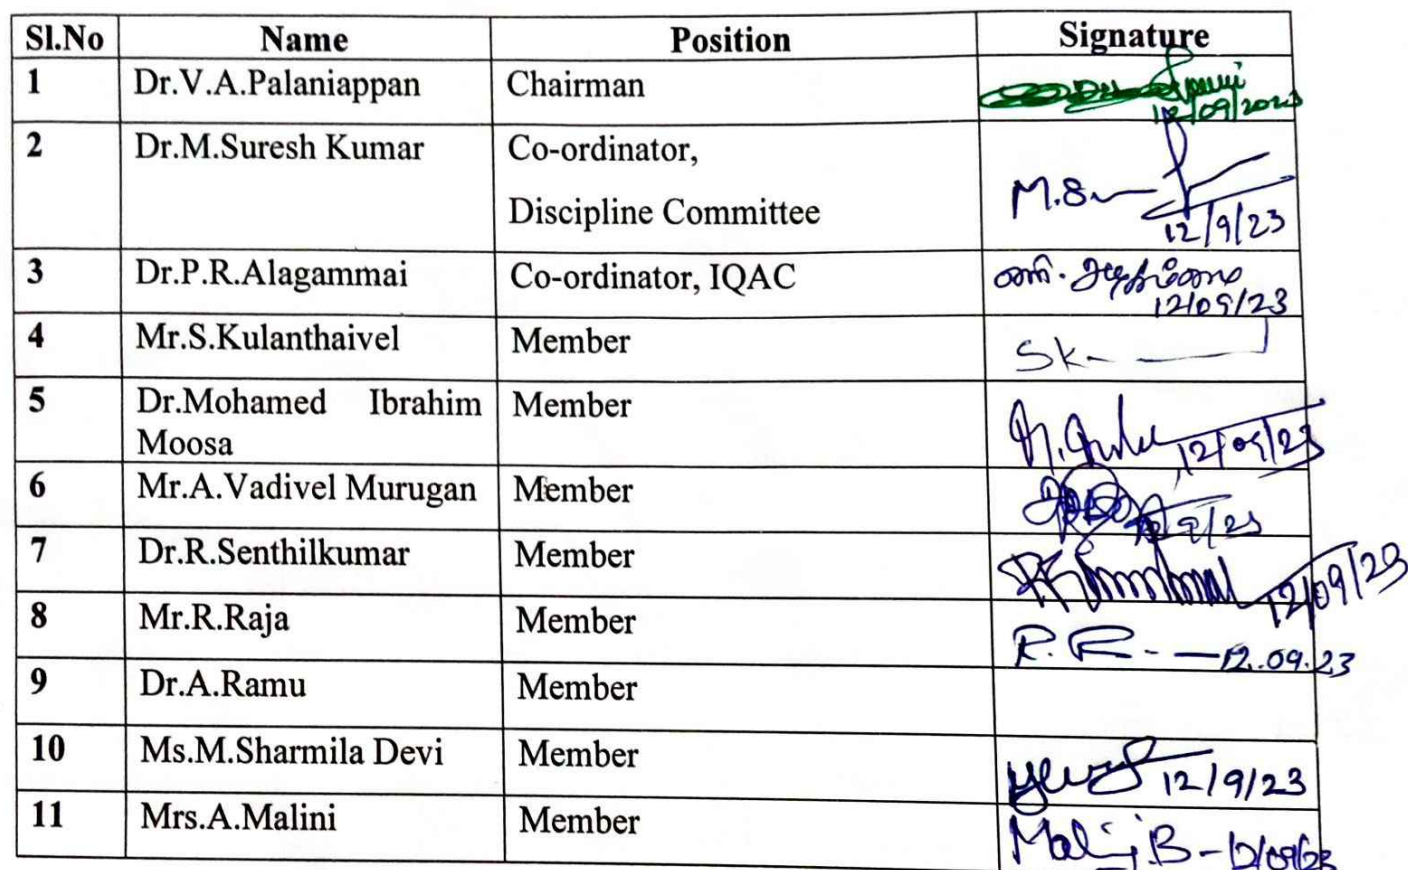 Sl.No Name Position Signature
1 Dr.V.A.Palaniappan Chairman
12/09/2023
2 Dr.M.Suresh Kumar Co-ordinator,
Discipline Committee M.S
12/9/23
3 Dr.P.R.Alagammai Co-ordinator, IQAC
12/09/23
4 Mr.S.Kulanthaivel Member SK
5 Dr.Mohamed Ibrahim Member
Moosa 12/09/23
6 Mr.A.Vadivel Murugan Member
12/9/23
7 Dr.R.Senthilkumar Member
12/09/23
8 Mr.R.Raja Member R.R. - 12.09.23
9 Dr.A.Ramu Member
10 Ms.M.Sharmila Devi Member 12/9/23
11 Mrs.A.Malini Member Malini B - 12/09/23